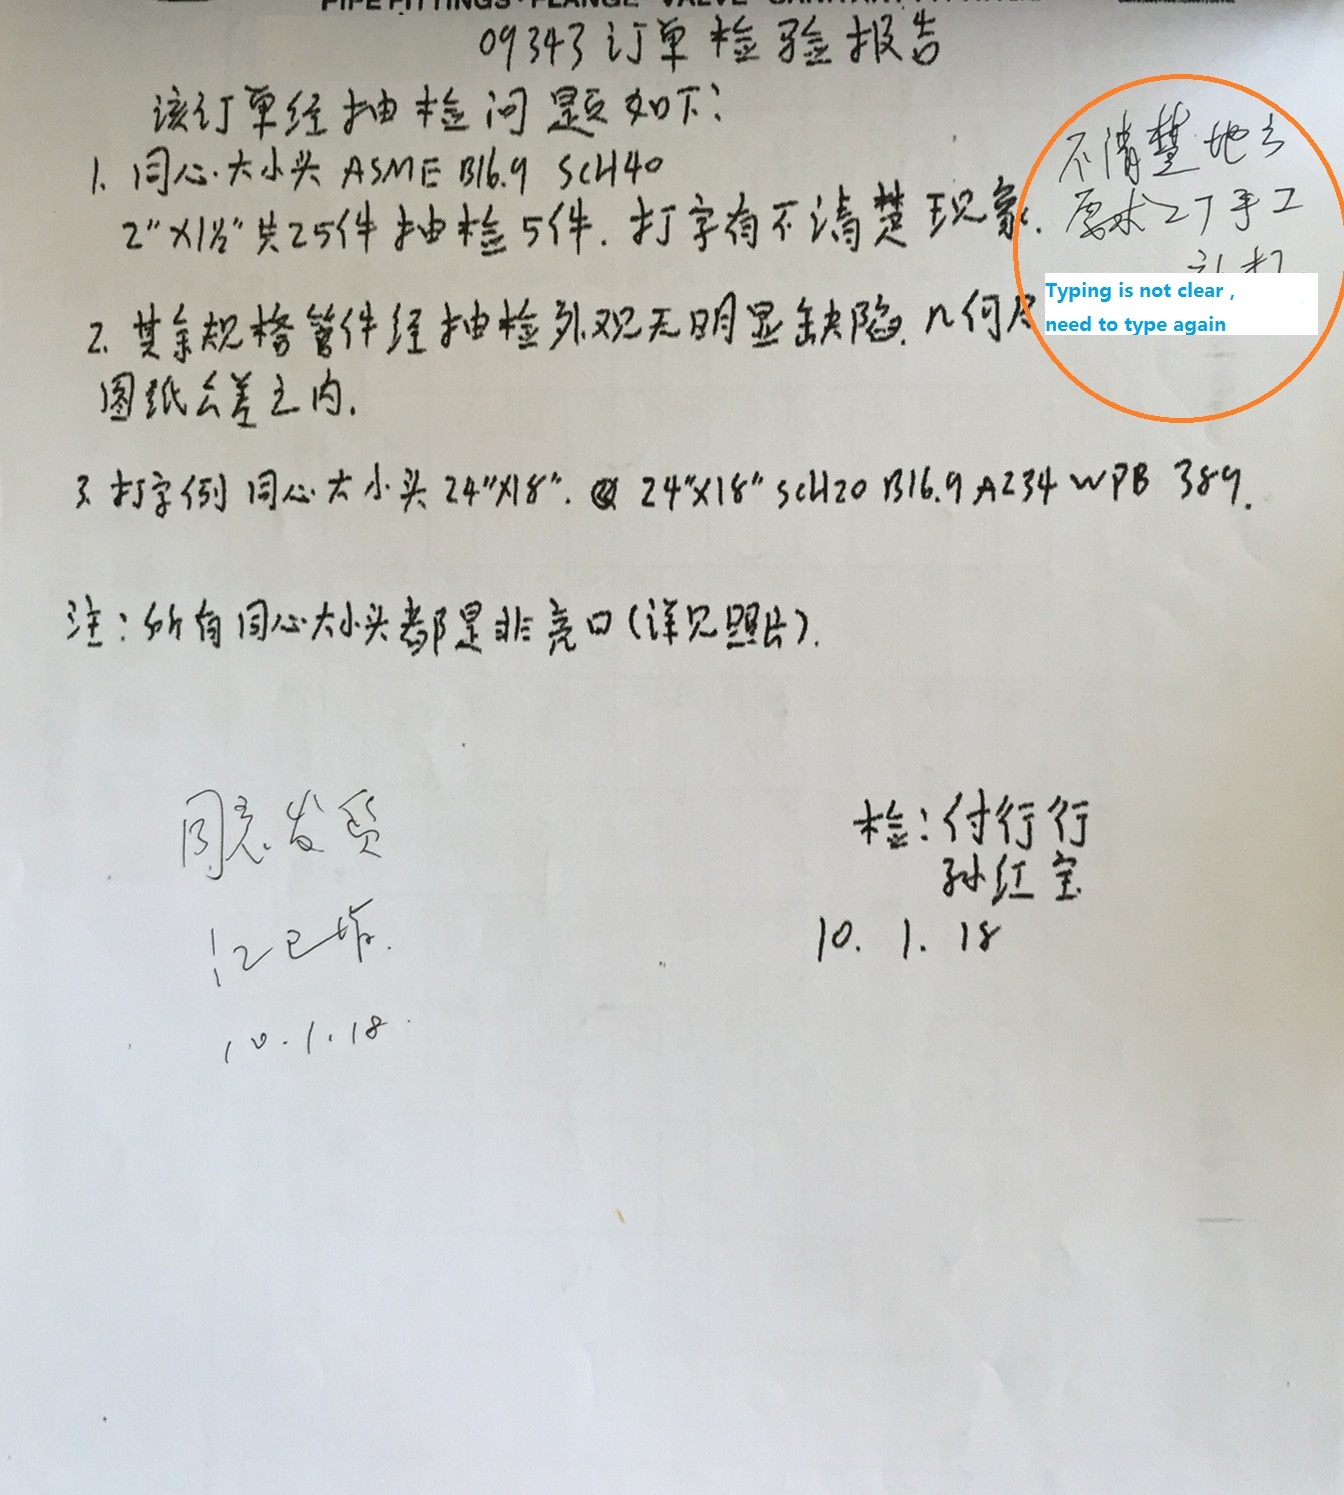 PIPE FITTINGS · FLANGE · VALVE
09343订单检验报告
该订单经抽检问题如下:
1. 同心大小头 ASME B16.9 SCH40
2"X1½"共25件抽检5件. 打字有不清楚现象.
不清楚地方
要求工厂手工
Typing is not clear ,
need to type again
2. 其余规格管件经抽检外观无明显缺陷. 几何尺
图纸公差之内.
3. 打字例 同心大小头 24"X18". 24"X18" SCH20 B16.9 A234 WPB 389.
注: 所有同心大小头都是非亮口(详见照片).
同意发货
10.1.18.
检: 付行行
孙红宝
10. 1. 18